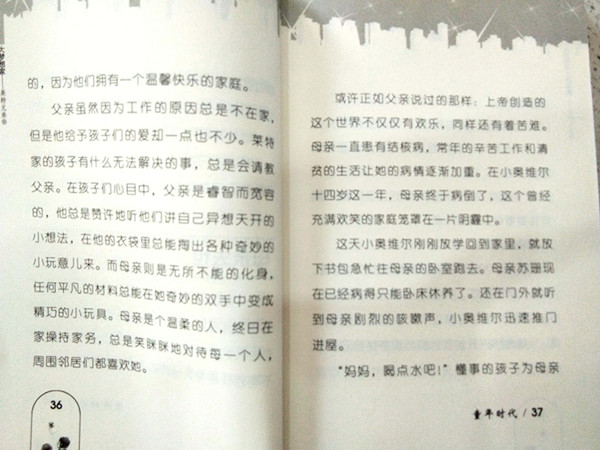 的，因为他们拥有一个温馨快乐的家庭。
父亲虽然因为工作的原因总是不在家，
但是他给予孩子们的爱却一点也不少。莱特
家的孩子有什么无法解决的事，总是会请教
父亲。在孩子们心目中，父亲是睿智而宽容
的，他总是赞许地听他们讲自己异想天开的
小想法，在他的衣袋里总能掏出各种奇妙的
小玩意儿来。而母亲则是无所不能的化身，
任何平凡的材料总能在她奇妙的双手中变成
精巧的小玩具。母亲是个温柔的人，终日在
家操持家务，总是笑眯眯地对待每一个人，
周围邻居们都喜欢她。
36
或许正如父亲说过的那样：上帝创造的
这个世界不仅仅有欢乐，同样还有着苦难。
母亲一直患有结核病，常年的辛苦工作和清
贫的生活让她的病情逐渐加重。在小奥维尔
十四岁这一年，母亲终于病倒了，这个曾经
充满欢笑的家庭笼罩在一片阴霾中。
这天小奥维尔刚刚放学回到家里，就放
下书包急忙往母亲的卧室跑去。母亲苏珊现
在已经病得只能卧床休养了。还在门外就听
到母亲剧烈的咳嗽声，小奥维尔迅速推门
进屋。
“妈妈，喝点水吧！”懂事的孩子为母亲
童年时代 / 37